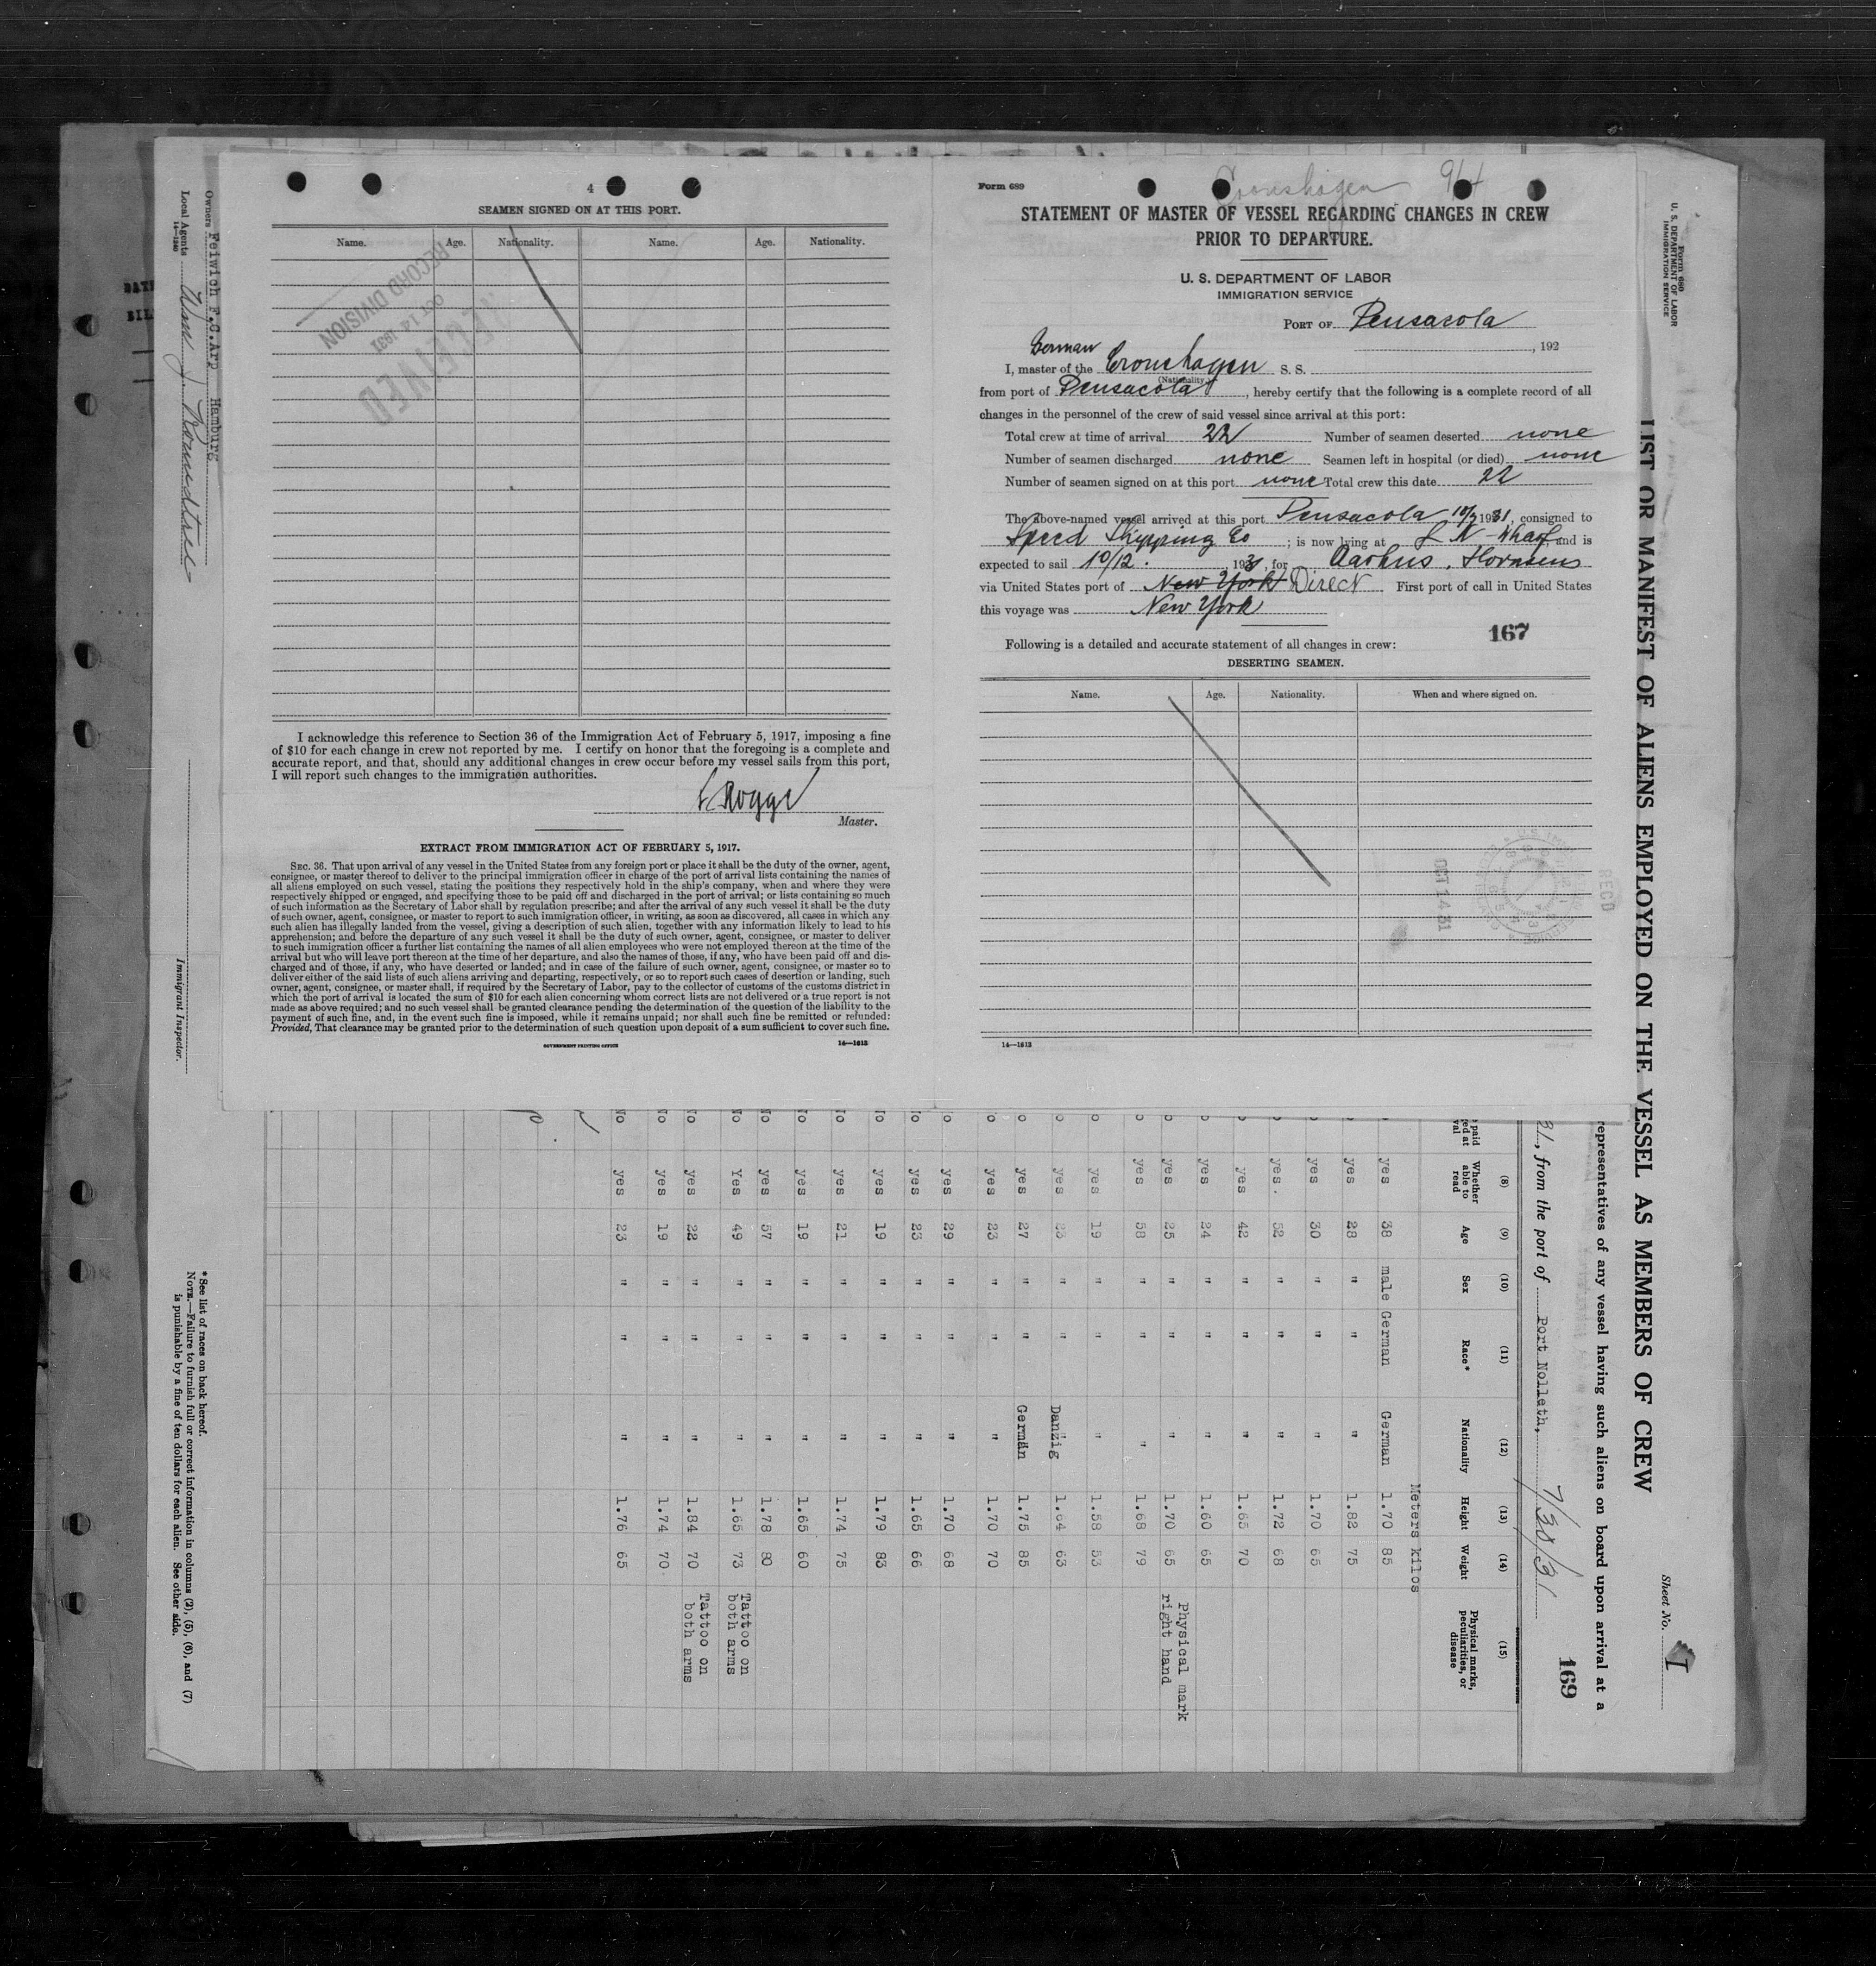 4
SEAMEN SIGNED ON AT THIS PORT.
Name. Age. Nationality. Name. Age. Nationality.
RECEIVED
OCT 14 1931
RECORD DIVISION
I acknowledge this reference to Section 36 of the Immigration Act of February 5, 1917, imposing a fine
of $10 for each change in crew not reported by me. I certify on honor that the foregoing is a complete and
accurate report, and that, should any additional changes in crew occur before my vessel sails from this port,
I will report such changes to the immigration authorities.
Rogge
Master.
EXTRACT FROM IMMIGRATION ACT OF FEBRUARY 5, 1917.
SEC. 36. That upon arrival of any vessel in the United States from any foreign port or place it shall be the duty of the owner, agent,
consignee, or master thereof to deliver to the principal immigration officer in charge of the port of arrival lists containing the names of
all aliens employed on such vessel, stating the positions they respectively hold in the ship's company, when and where they were
respectively shipped or engaged, and specifying those to be paid off and discharged in the port of arrival; or lists containing so much
of such information as the Secretary of Labor shall by regulation prescribe; and after the arrival of any such vessel it shall be the duty
of such owner, agent, consignee, or master to report to such immigration officer, in writing, as soon as discovered, all cases in which any
such alien has illegally landed from the vessel, giving a description of such alien, together with any information likely to lead to his
apprehension; and before the departure of any such vessel it shall be the duty of such owner, agent, consignee, or master to deliver
to such immigration officer a further list containing the names of all alien employees who were not employed thereon at the time of the
arrival but who will leave port thereon at the time of her departure, and also the names of those, if any, who have been paid off and dis-
charged and of those, if any, who have deserted or landed; and in case of the failure of such owner, agent, consignee, or master so to
deliver either of the said lists of such aliens arriving and departing, respectively, or so to report such cases of desertion or landing, such
owner, agent, consignee, or master shall, if required by the Secretary of Labor, pay to the collector of customs of the customs district in
which the port of arrival is located the sum of $10 for each alien concerning whom correct lists are not delivered or a true report is not
made as above required; and no such vessel shall be granted clearance pending the determination of the question of the liability to the
payment of such fine, and, in the event such fine is imposed, while it remains unpaid; nor shall such fine be remitted or refunded:
Provided, That clearance may be granted prior to the determination of such question upon deposit of a sum sufficient to cover such fine.
GOVERNMENT PRINTING OFFICE 14—1613
Form 689
Cronshagen 9/4
STATEMENT OF MASTER OF VESSEL REGARDING CHANGES IN CREW
PRIOR TO DEPARTURE.
U. S. DEPARTMENT OF LABOR
IMMIGRATION SERVICE
PORT OF Pensacola
, 192
German
I, master of the Cronshagen S. S.
(Nationality)
from port of Pensacola, hereby certify that the following is a complete record of all
changes in the personnel of the crew of said vessel since arrival at this port:
Total crew at time of arrival 22 Number of seamen deserted none
Number of seamen discharged none Seamen left in hospital (or died) none
Number of seamen signed on at this port none Total crew this date 22
The above-named vessel arrived at this port Pensacola 10/7 1931, consigned to
Speed Shipping Co; is now lying at L N Wharf, and is
expected to sail 10/12. , 1931, for Aarhus. Hornsens
via United States port of New York Direct First port of call in United States
this voyage was New York
167
Following is a detailed and accurate statement of all changes in crew:
DESERTING SEAMEN.
Name. Age. Nationality. When and where signed on.
OCT 14 31
RECD
14—1613
Form 680
U. S. DEPARTMENT OF LABOR
IMMIGRATION SERVICE
Sheet No. I
LIST OR MANIFEST OF ALIENS EMPLOYED ON THE VESSEL AS MEMBERS OF CREW
representatives of any vessel having such aliens on board upon arrival at a
31, from the port of Port Nolleth, 7/30/31
169
(8) (9) (10) (11) (12) (13) (14) (15)
Whether able to read Age Sex Race* Nationality Height Weight Physical marks, peculiarities, or disease
Meters kilos
yes 38 male German German 1.70 85
yes 28 " " " 1.82 75
yes 30 " " " 1.70 65
yes. 52 " " " 1.72 68
yes 42 " " " 1.65 70
yes 24 " " " 1.60 65
yes 25 " " " 1.70 65 Physical mark right hand
yes 58 " " " 1.68 79
yes 19 " " " 1.58 53
yes 23 " " Danzig 1.64 63
yes 27 " " German 1.75 85
yes 23 " " " 1.70 70
yes 29 " " " 1.70 68
yes 23 " " " 1.65 66
yes 19 " " " 1.79 83
yes 21 " " " 1.74 75
yes 19 " " " 1.65 60
yes 57 " " " 1.78 80
Yes 49 " " " 1.65 73 Tattoo on both arms
yes 22 " " " 1.84 70 Tattoo on both arms
yes 19 " " " 1.74 70
yes 23 " " " 1.76 65
Owners Feiwich F.C.Arp Hamburg
Local Agents
14—1240
Immigrant Inspector.
*See list of races on back hereof.
NOTE.—Failure to furnish full or correct information in columns (2), (5), (6), and (7)
is punishable by a fine of ten dollars for each alien. See other side.